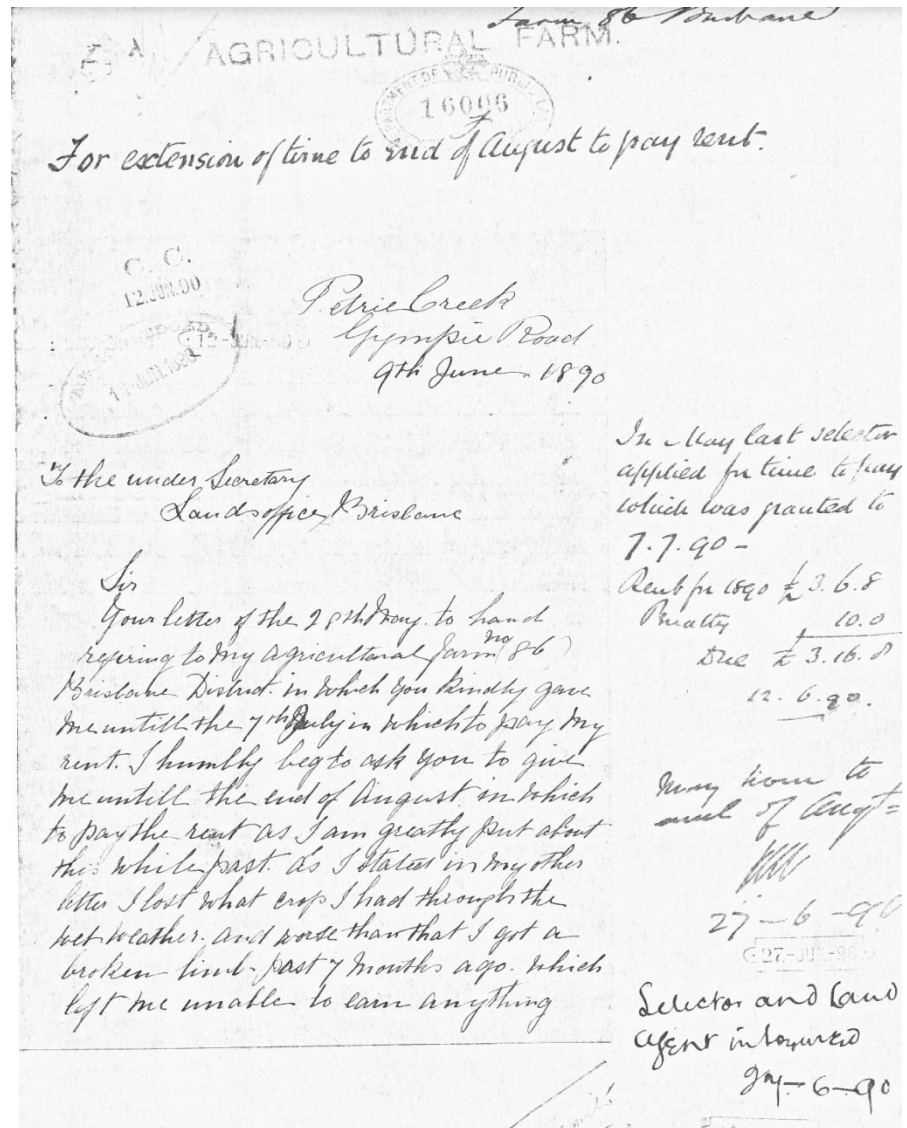 Farm 86 Brisbane
AGRICULTURAL FARM.
16006
For extension of time to end of August to pay rent.
C. C.
12 JUN. 90
12-JUN-90
Petrie Creek
Gympie Road
9th June 1890
To the under Secretary
Lands office, Brisbane
Sir
Your letter of the 28th May. to hand
refering to my agricultural farm (no 86)
Brisbane District. in which you kindly gave
me untill the 7th July in which to pay my
rent. I humbly beg to ask you to give
me untill the end of August in which
to pay the rent as I am greatly put about
this while past. as I stated in my other
letter I lost what crop I had through the
wet weather. and worse than that I got a
broken limb. past 7 months ago. which
left me unable to earn anything
In May last selector
applied for time to pay
which was granted to
7.7.90 -
Rent for 1890 £ 3.6.8
Penalty 10.0
Due £ 3.16.8
12.6.90.
May have to
end of Augt =
27-6-90
27-JUN-90
Selector and Land
agent informed
-6-90